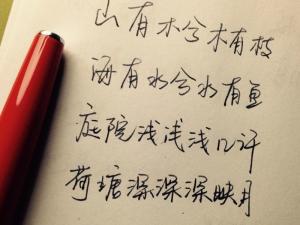 山有木兮木有枝
海有水兮水有鱼
庭院浅浅浅几许
荷塘深深深映月